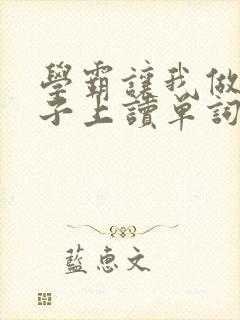 學霸讓我做
子上讀單詞
藍惠文